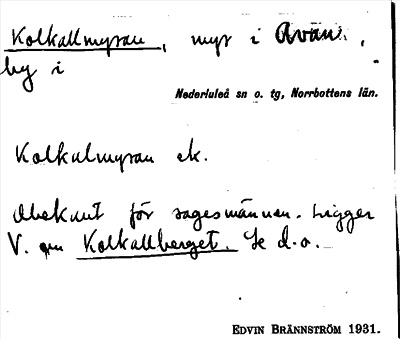 Kolkallmyran, myr i Avan,
by i
Nederluleå sn o. tg, Norrbottens län.
Kolkalmyran ek.
Obekant för sagesmännen. Ligger
V. om Kolkallberget. Se d.o.
EDVIN BRÄNNSTRÖM 1931.